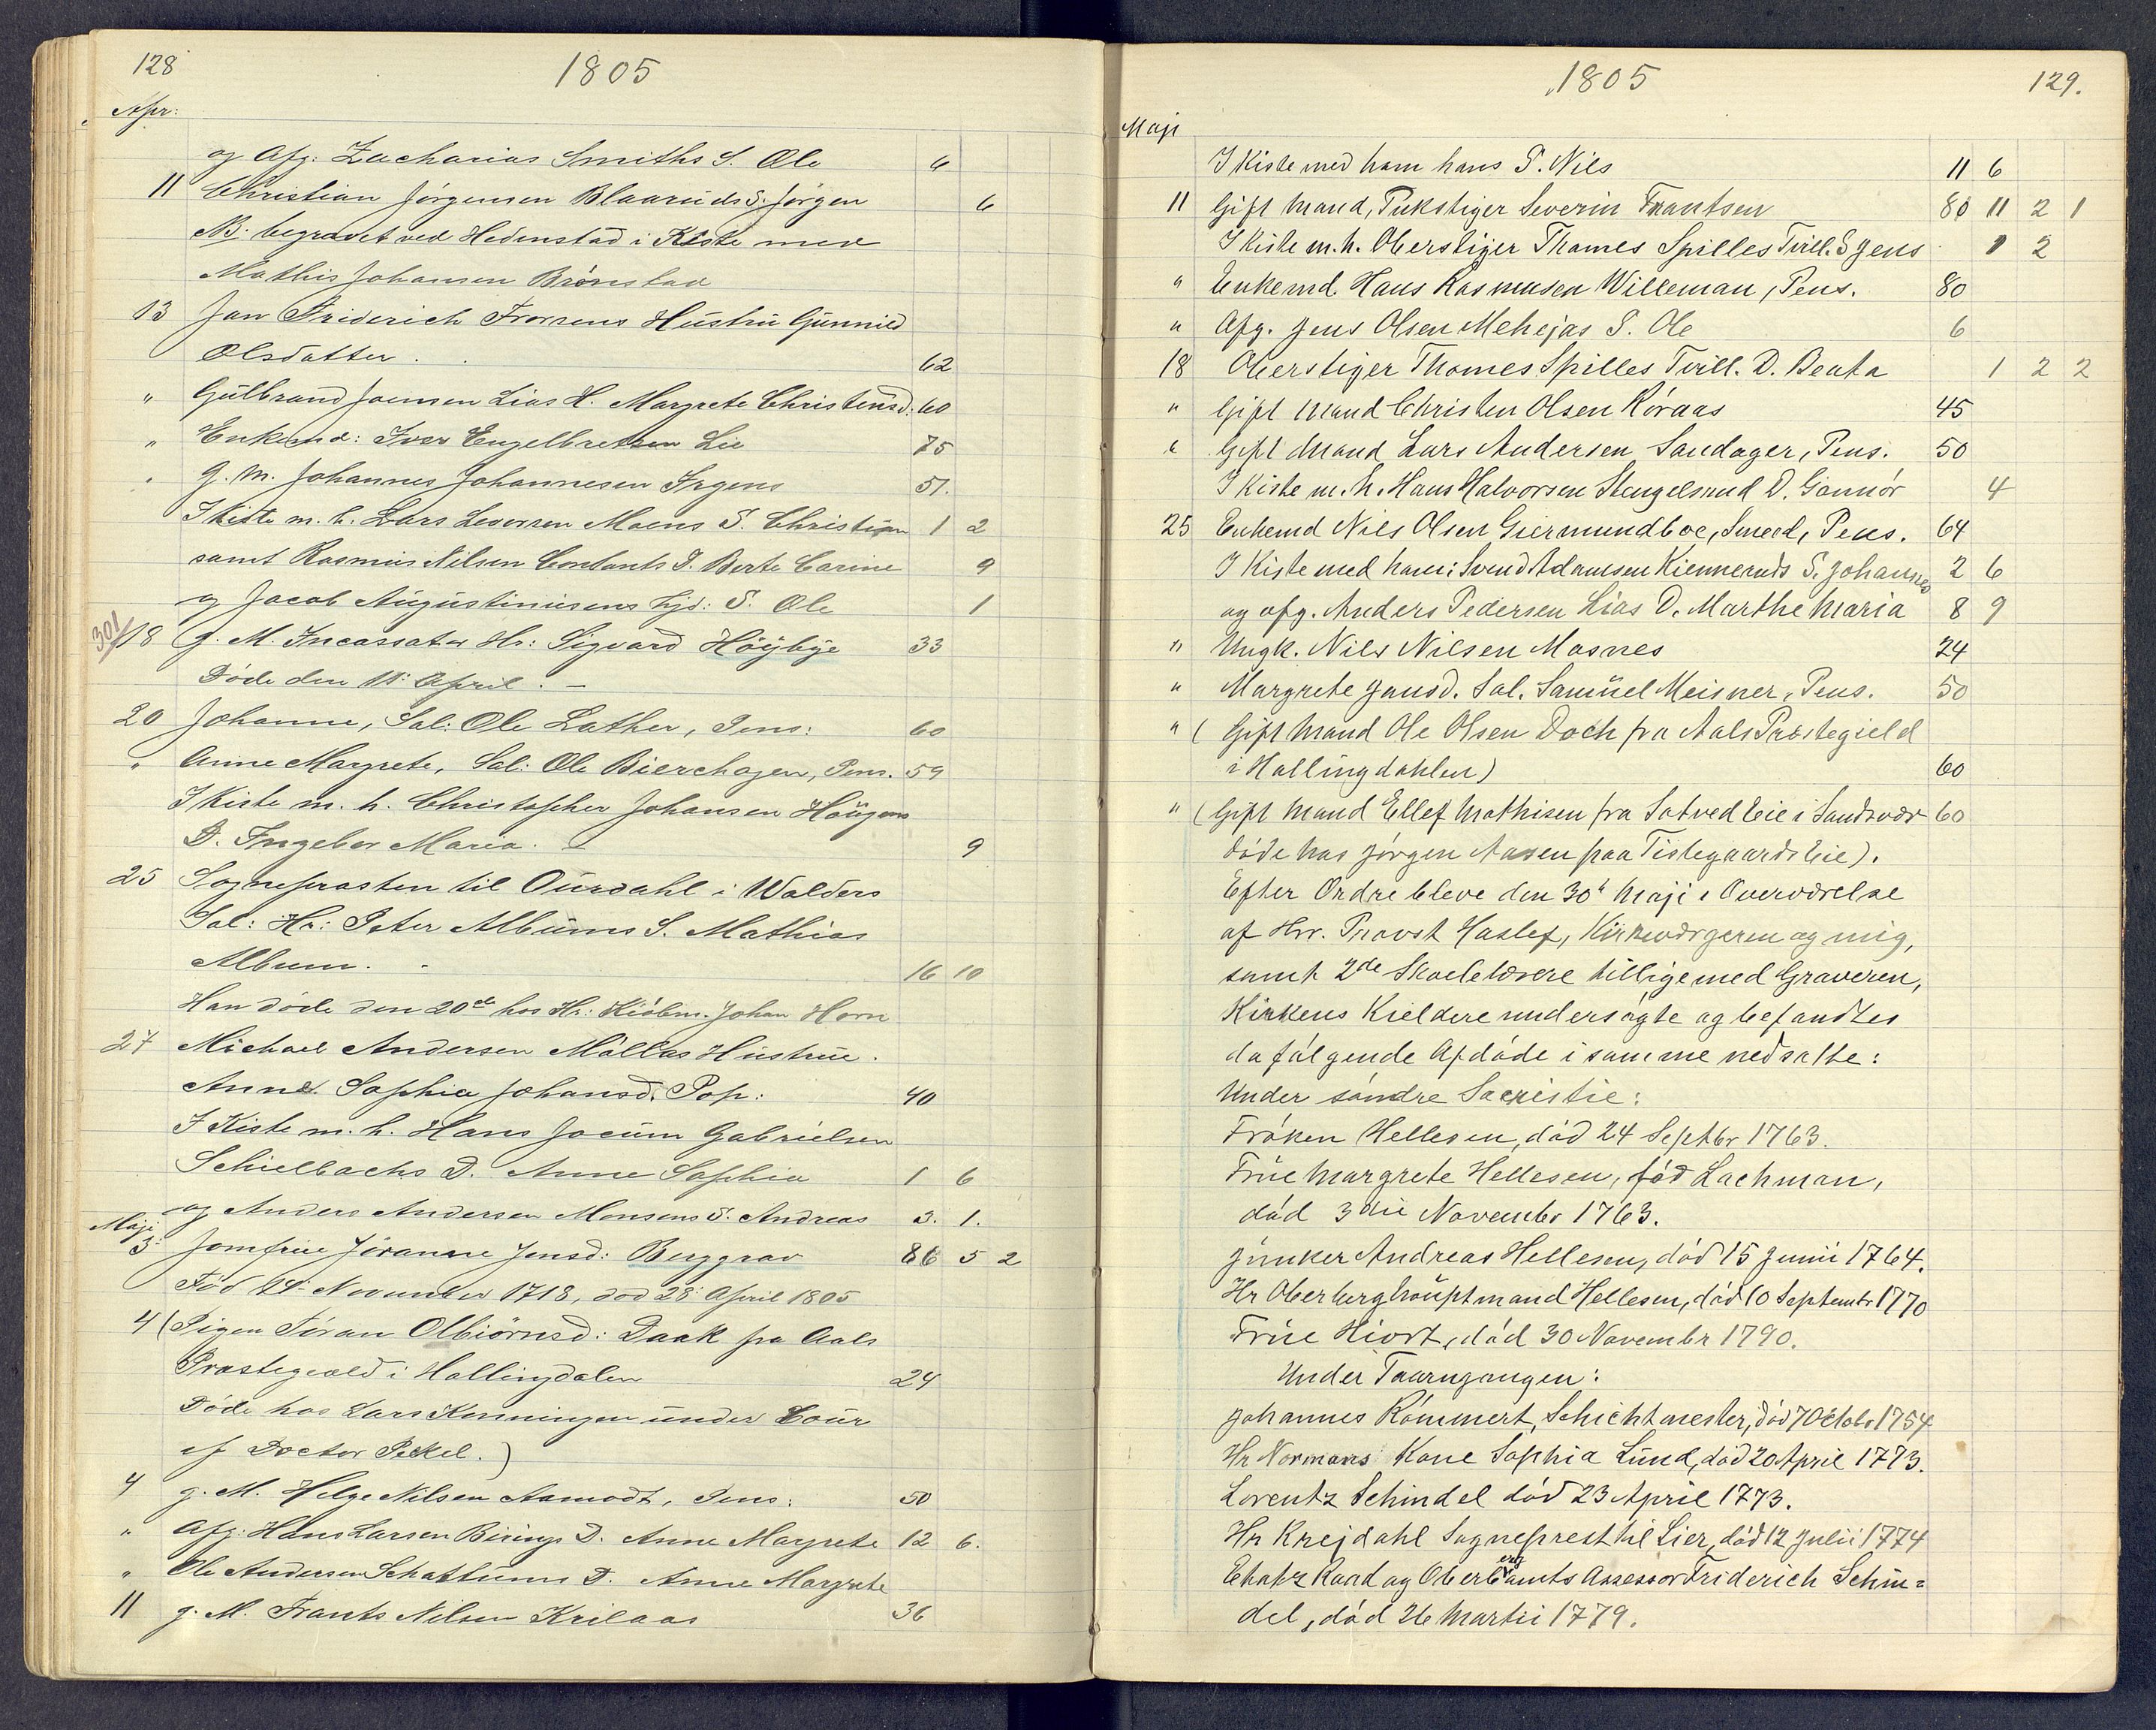 128
1805
Apr:
og Afg: Zacharias Smiths S. Ole 6
11 Christian Jørgensen Blaaruds S. Jørgen 6
NB. begravet ved Hedenstad i Kiste med
Mathis Johansen Brønstad
13 Jan Friderich Hustrü Günnild
Olsdatter . . 62
" Gülbrand Joensen Lias H. Margrete Christensd. 60
" Enkemd: Iver Engelbretsen Lie 75
" G. M. Johannes Johannesen Irgens 51.
I Kiste m. h. Lars Moens S. Christian 1 2
samt Rasmus Nilsen Contants D. Berte Carine 9
og Jacob Augustinusens S. Ole 1
301/18 g. M. Incassator Hr: Sigvard Höÿbÿe 33
Døde den 11 April . –
20 Johanne, Sal: Ole Lather, Pens: 60
" Anne Margrete, Sal: Ole Bierchagen, Pens. 59
I Kiste m. h. Christopher Johansen Haügens
D. Ingebor Maria. – 9
25 Sognepræsten til Oürdahl i Walders
Sal: Hr: Peter Albüms S. Mathias
Album. . 16 10
Han døde den 20de hos Hr: Kiøbm. Johan Horn
27 Michael Andersen Møllas Hüstrüe.
Anne Sophia Johansd. Pop: 40
I Kiste m. h. Hans Jocüm Gabrielsen
Schielbachs D. Anne Sophia 1 6
og Anders Andersen Monsens S. Andreas 3. 1.
Maji
3: Jomfrüe Jøranne Jensd: Berggrav 86 5 2
Fød November 1718, død 28 April 1805
4 (Pigen Jøran Olbiørnsd: Daak fra Aals
Præstegield i Hallingdalen 24
Døde hos Lars Kenningen ünder Coür
af Doctor Peckel.)
4 g. M. Helge Nilsen Aamodt, Pens: 50
" Afg: Hans Larsen Birings D. Anne Margrete 12 6.
" Ole Andersen Schattüms D. Anne Margrete
11 g. M. Frants Nilsen Krilaas 36
1805
129.
Maji
I Kiste med ham hans S. Nils 11 6
11 Gift Mand, Pukstiger Severin Frantsen 80 11 2 1
I Kiste m. h. Oberstiger Thomes Spilles Tvill. S Jens 1 2
" Enkemd. Hans Rasmusen Willeman, Pens. 80
" Afg. Jens Olsen Mehejas S. Ole 6
18 Oberstiger Thomes Spilles Tvill. D. Beata 1 2 2
" Gift Mand Christen Olsen Køraas 45
" Gift Mand Lars Andersen Sandager, Pens. 50
I Kiste m. h. Hans Halvorsen Stengelsrud D. Gonnör 4
25 Enkemd Nils Olsen Giermundboe, Smed, Pens. 64
I Kiste med ham: Svend Adamsen Kiennerüds S. Johannes 2 6
og afg. Anders Pedersen Lias D. Marthe Maria 8 9
" Ungk. Nils Nilsen Masnes 24
" Margrete Jansd. Sal. Samüel Meisner, Pens. 50
" (Gift Mand Ole Olsen Doch fra Aals Præstegield
i Hallingdahlen) 60
" (Gift Mand Ellef Mathisen fra Satved Eie i Sandsvær 60
døde hos Jørgen Aasen paa Tistegaards Eie).
Efter Ordre bleve den 30t Maji i Overværelse
af Hrr. Provst Haslef, Kirkeværgeren og mig,
samt 2de Skoelelærere tilligemed Graveren,
Kirkens Kieldere undersøgte og befandtes
da følgende Afdøde i samme nedsatte:
Under søndre Sacristie:
Frøken Hellesen, død 24 Septbr 1763.
Früe Margrete Hellesen, fød Lachman,
død 3die Novembr 1763.
Jünker Andreas Hellesen, død 15 Junii 1764.
Hr Oberberghaüptmand Hellesen, død 10 Septembr 1770
Früe Hiort, død 30 Novembr 1790.
Under Taarngangen:
Johannes Rømmert, Schichtmester, død 7 Octobr 1754
Hr Normans Kone Sophia Lünd, død 20 April 1773.
Lorentz Schindel død 23 April 1773.
Hr Krejdahl Sogneprest til Lier, død 12 Julii 1774
Etatz Raad og Oberbergamts Assessor Friderich Schin=
del, død 26 Martii 1779.